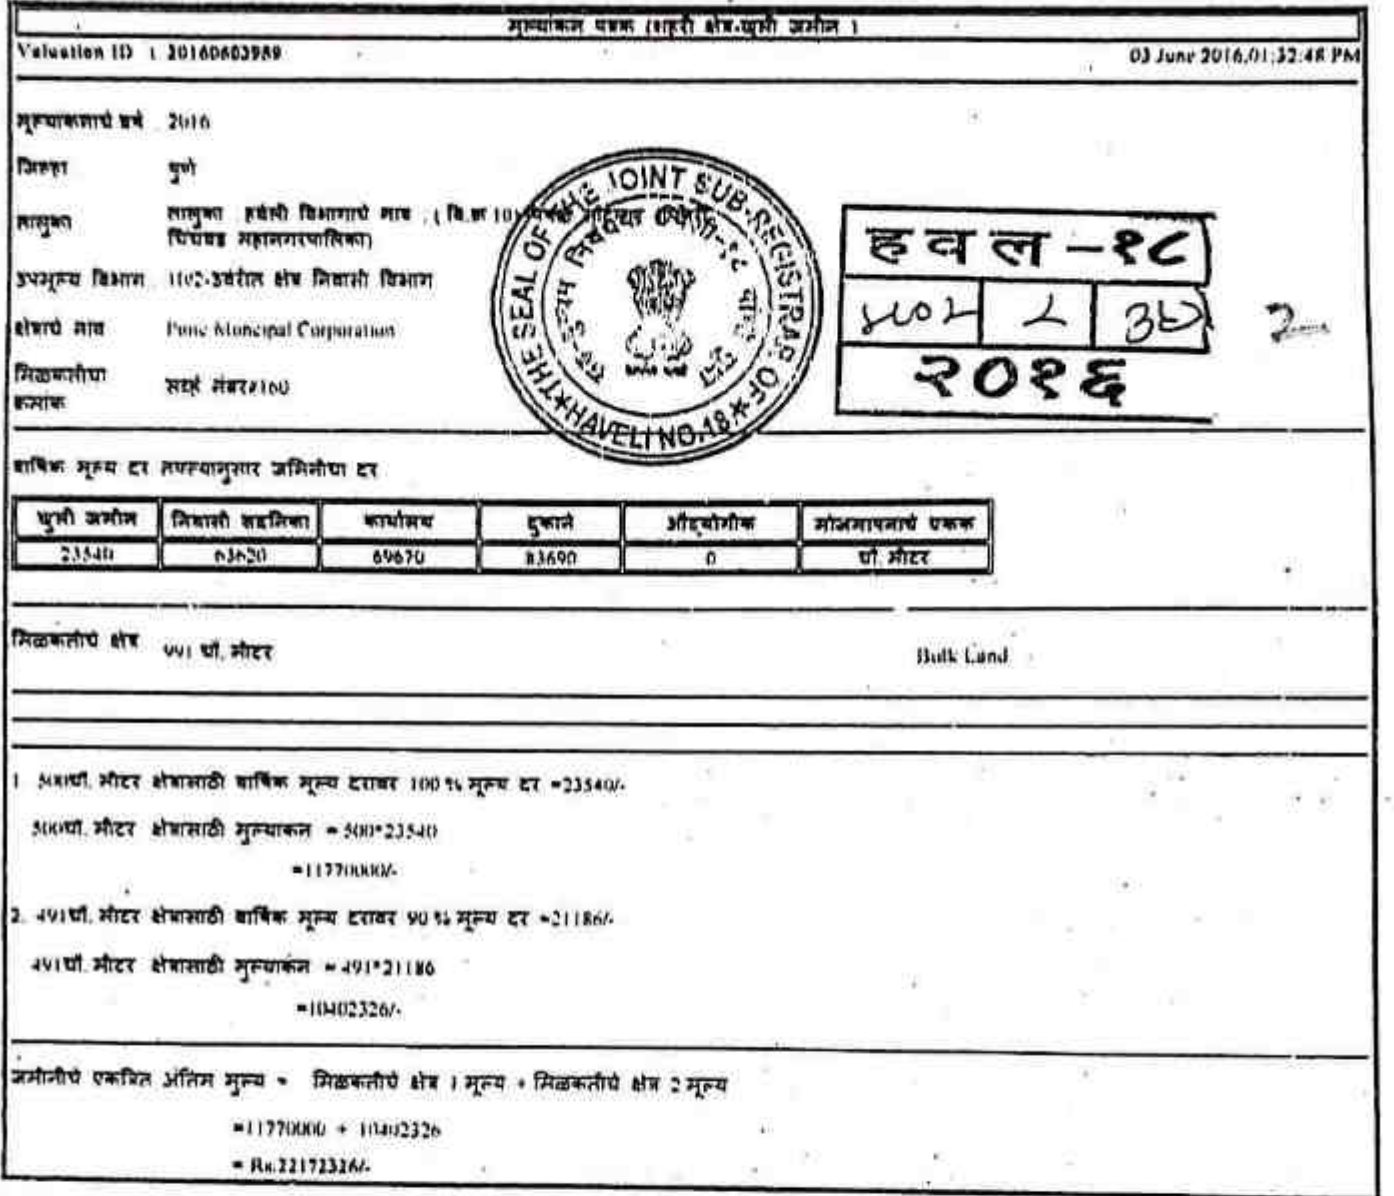 मूल्यांकन पत्रक (शहरी क्षेत्र-खुली जमीन )
Valuation ID : 20160603989 03 June 2016,01:32:48 PM
मूल्यांकनाचे वर्ष 2016
जिल्हा पुणे
तालुका तालुका हवेली विभागाचे नाव : ( वि.क्र 10)
चिंचवड महानगरपालिका)
उपमूल्य विभाग क्षेत्र निवासी विभाग
क्षेत्राचे नाव Pune Muncipal Corporation
मिळकतीचा क्रमांक सर्व्हे नंबर#160
THE SEAL OF THE JOINT SUB-REGISTRAR OF
HAVELI NO.18
हवल -१८
२
२०१६
वार्षिक मूल्य दर तक्त्यानुसार जमिनीचा दर
खुली जमीन निवासी सदनिका कार्यालय दुकाने औद्योगीक मोजमापनाचे एकक
23540 63620 69670 83690 0 चौ. मीटर
मिळकतीचे क्षेत्र 991 चौ. मीटर Bulk Land
1. 500चौ. मीटर क्षेत्रासाठी वार्षिक मूल्य दरावर 100 % मूल्य दर =23540/-
500चौ. मीटर क्षेत्रासाठी मुल्याकन = 500*23540
=11770000/-
2. 491चौ. मीटर क्षेत्रासाठी वार्षिक मूल्य दरावर 90 % मूल्य दर =21186/-
491चौ. मीटर क्षेत्रासाठी मुल्याकन = 491*21186
=10402326/-
जमीनीचे एकत्रित अंतिम मुल्य = मिळकतीचे क्षेत्र 1 मूल्य + मिळकतीचे क्षेत्र 2 मूल्य
=11770000 + 10402326
= Rs.22172326/-